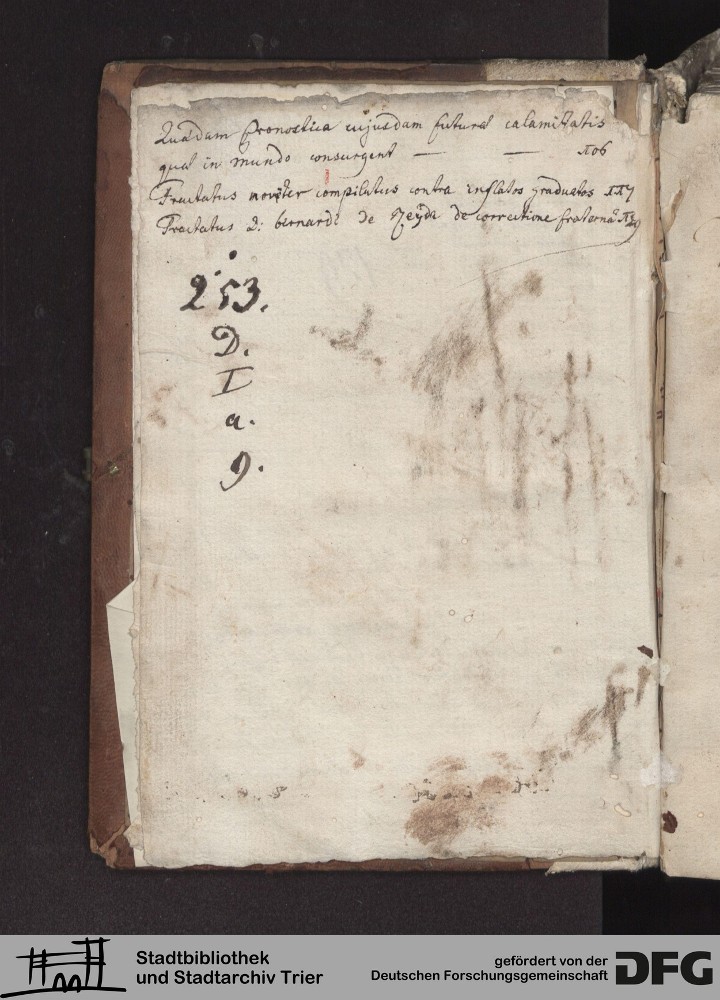 Quadam Pronostica cujusdam futurae calamitatis
quae in mundo consurgent — — 106
Tractatus noviter compilatus contra inflatos graduatos 117
Tractatus D: bernardi de Zeyda de correctione fraterna
253.
D.
I
a.
9.
Stadtbibliothek
und Stadtarchiv Trier
gefördert von der
Deutschen Forschungsgemeinschaft
DFG